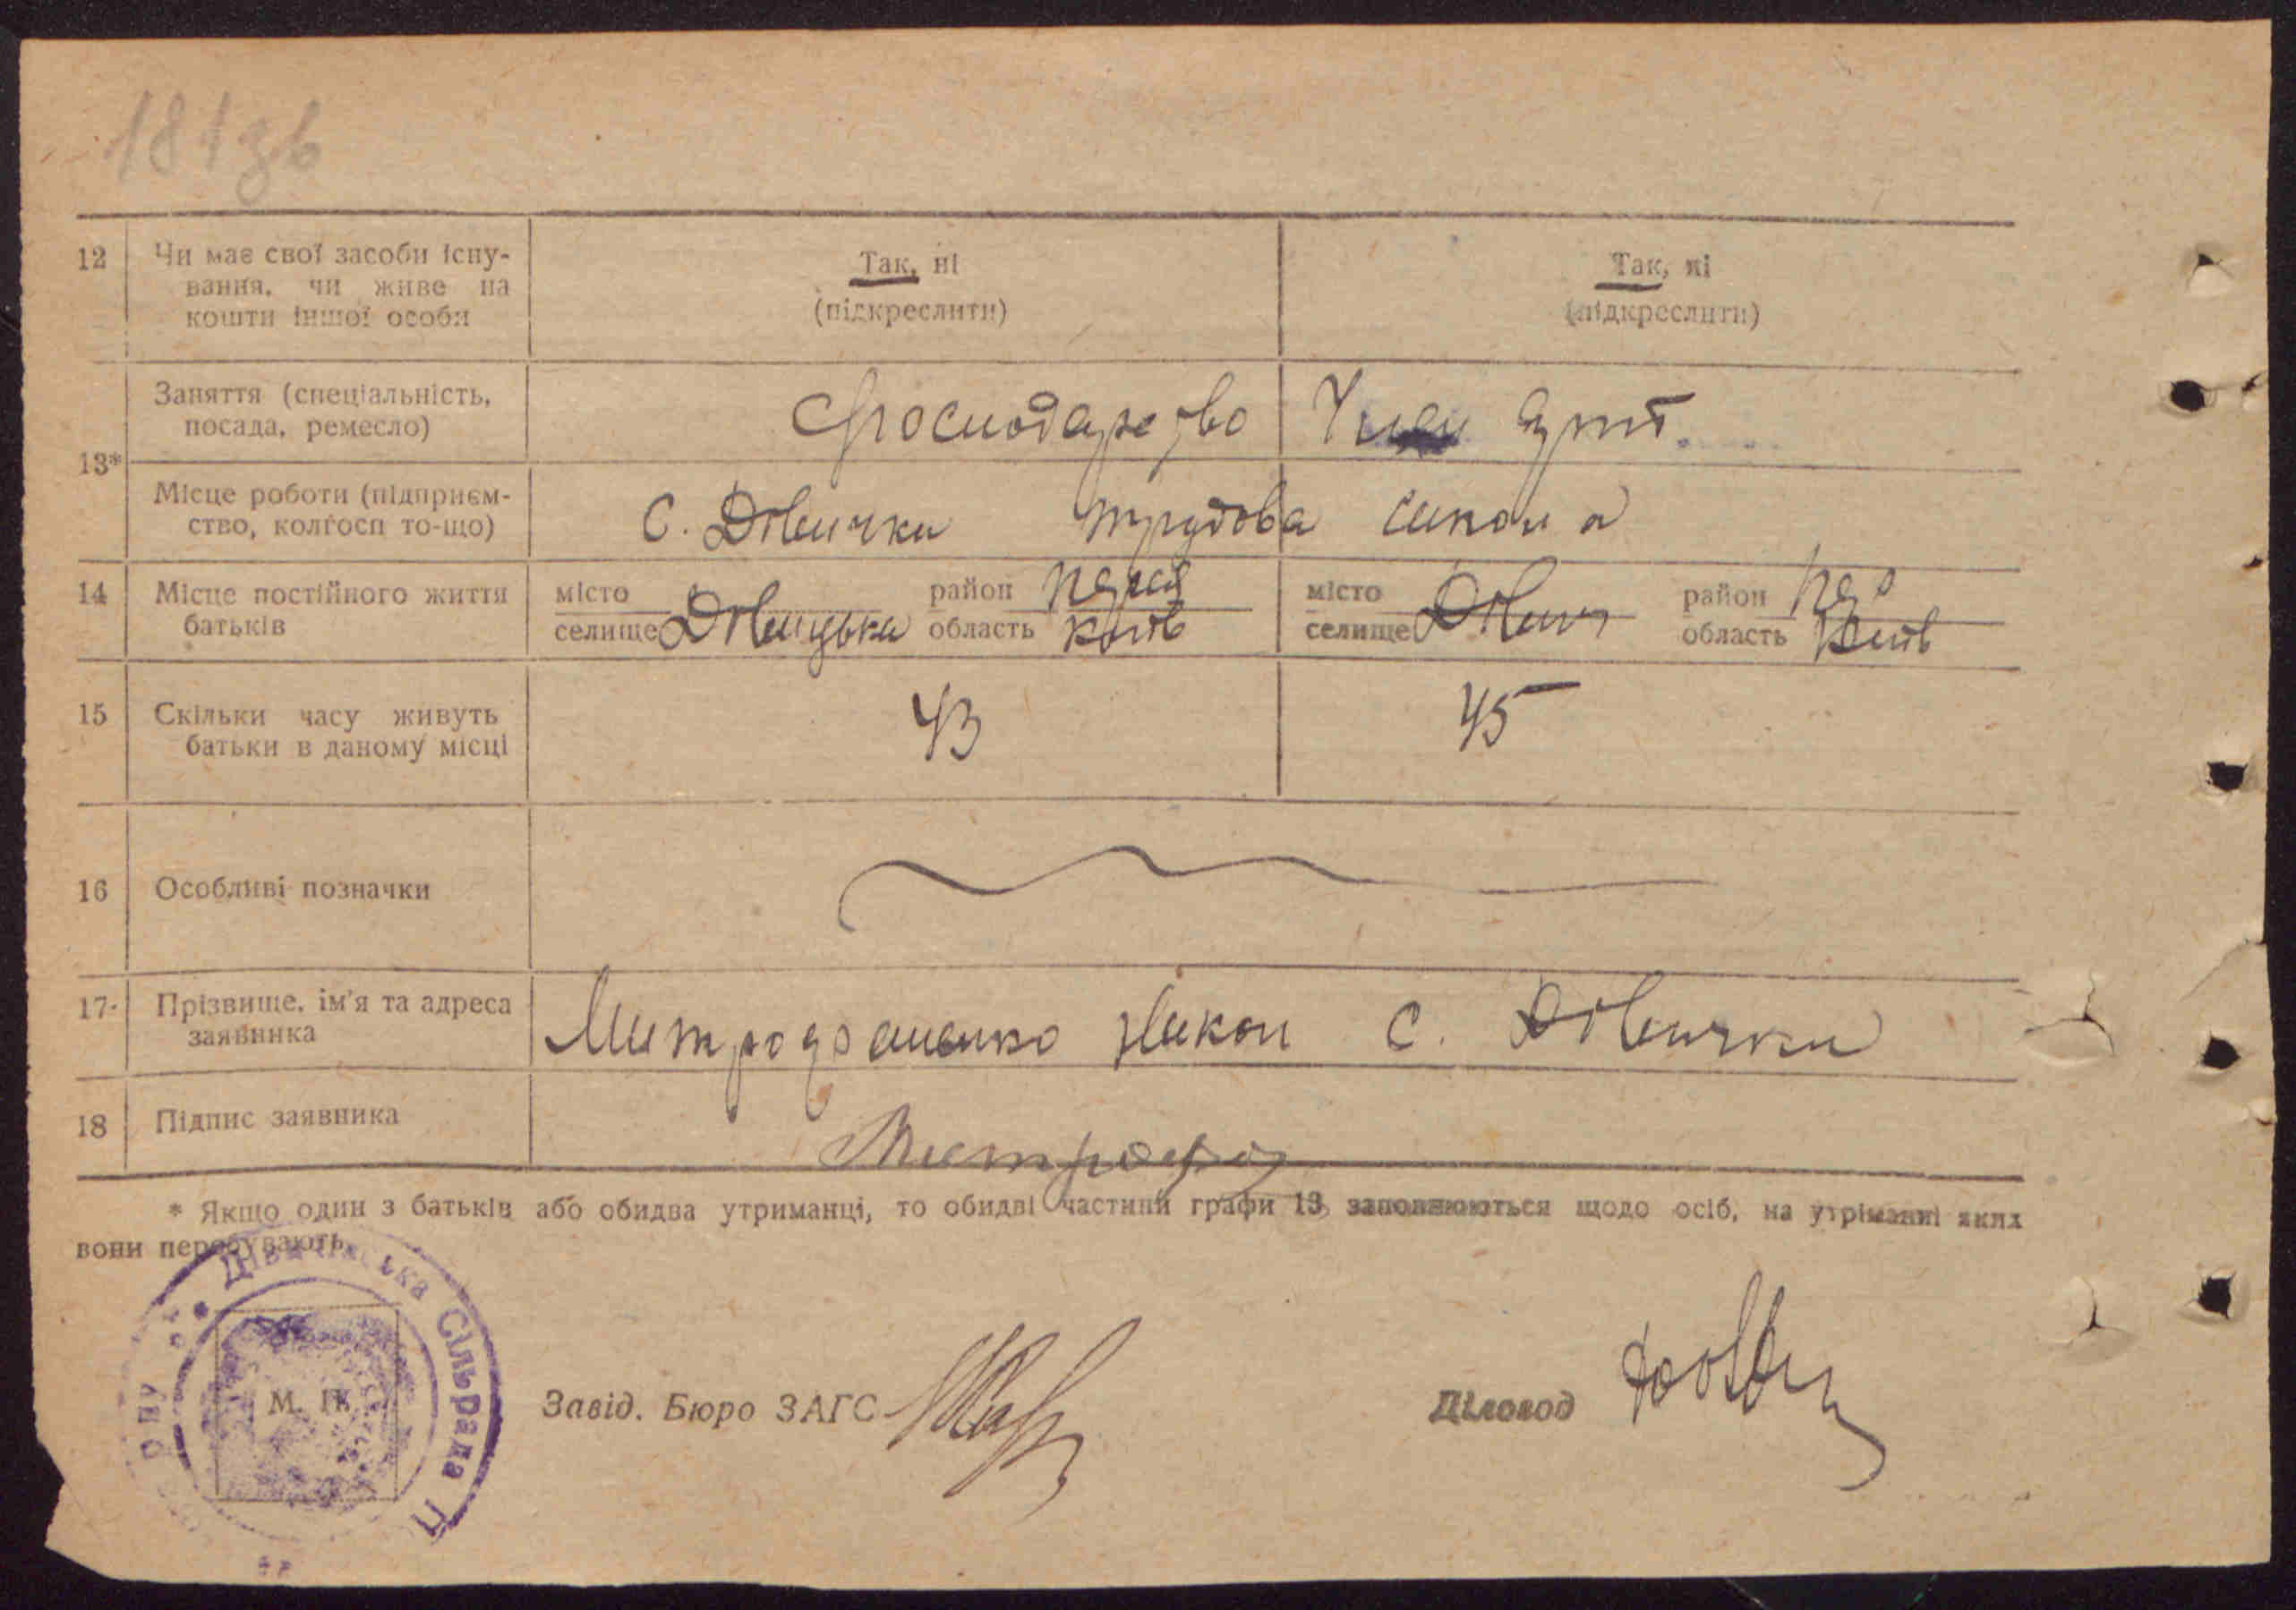 181зв
12 Чи має свої засоби існу-
вання, чи живе на
кошти іншої особи
Так, ні
(підкреслити)
Так, ні
(підкреслити)
13*
Заняття (спеціальність,
посада, ремесло)
Господарство
Член арт.
Місце роботи (підприєм-
ство, колгосп то-що)
С. Дівички трудова школа
14 Місце постійного життя
батьків
місто
селище Дівички
район
область Київ
місто
селище Дівич
район Пер
область Київ
15 Скільки часу живуть
батьки в даному місці
43
45
16 Особливі позначки
17 Прізвище, ім'я та адреса
заявника
Никон С. Дівички
18 Підпис заявника
* Якщо один з батьків або обидва утриманці, то обидві частини графи 13, заповнюються щодо осіб, на утріманні яких
вони перебувають.
Сільрада
М. П.
Завід. Бюро ЗАГС
Діловод